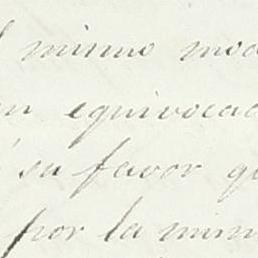 mismo mod
en equivocad
su favor q
por la mism